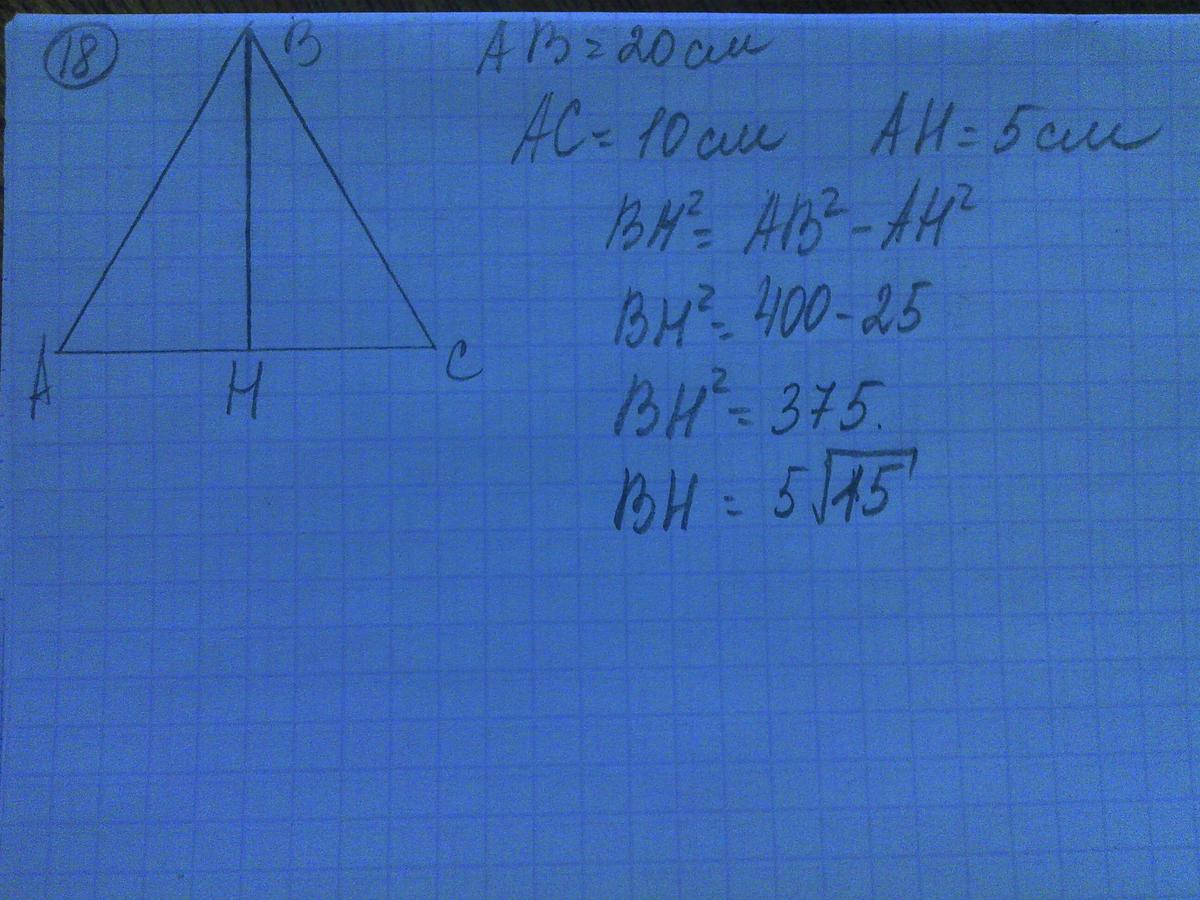 18
B
AB = 20 см
AC = 10 см AH = 5 см
BH² = AB² - AH²
BH² = 400 - 25
A H C
BH² = 375.
BH = 5√15